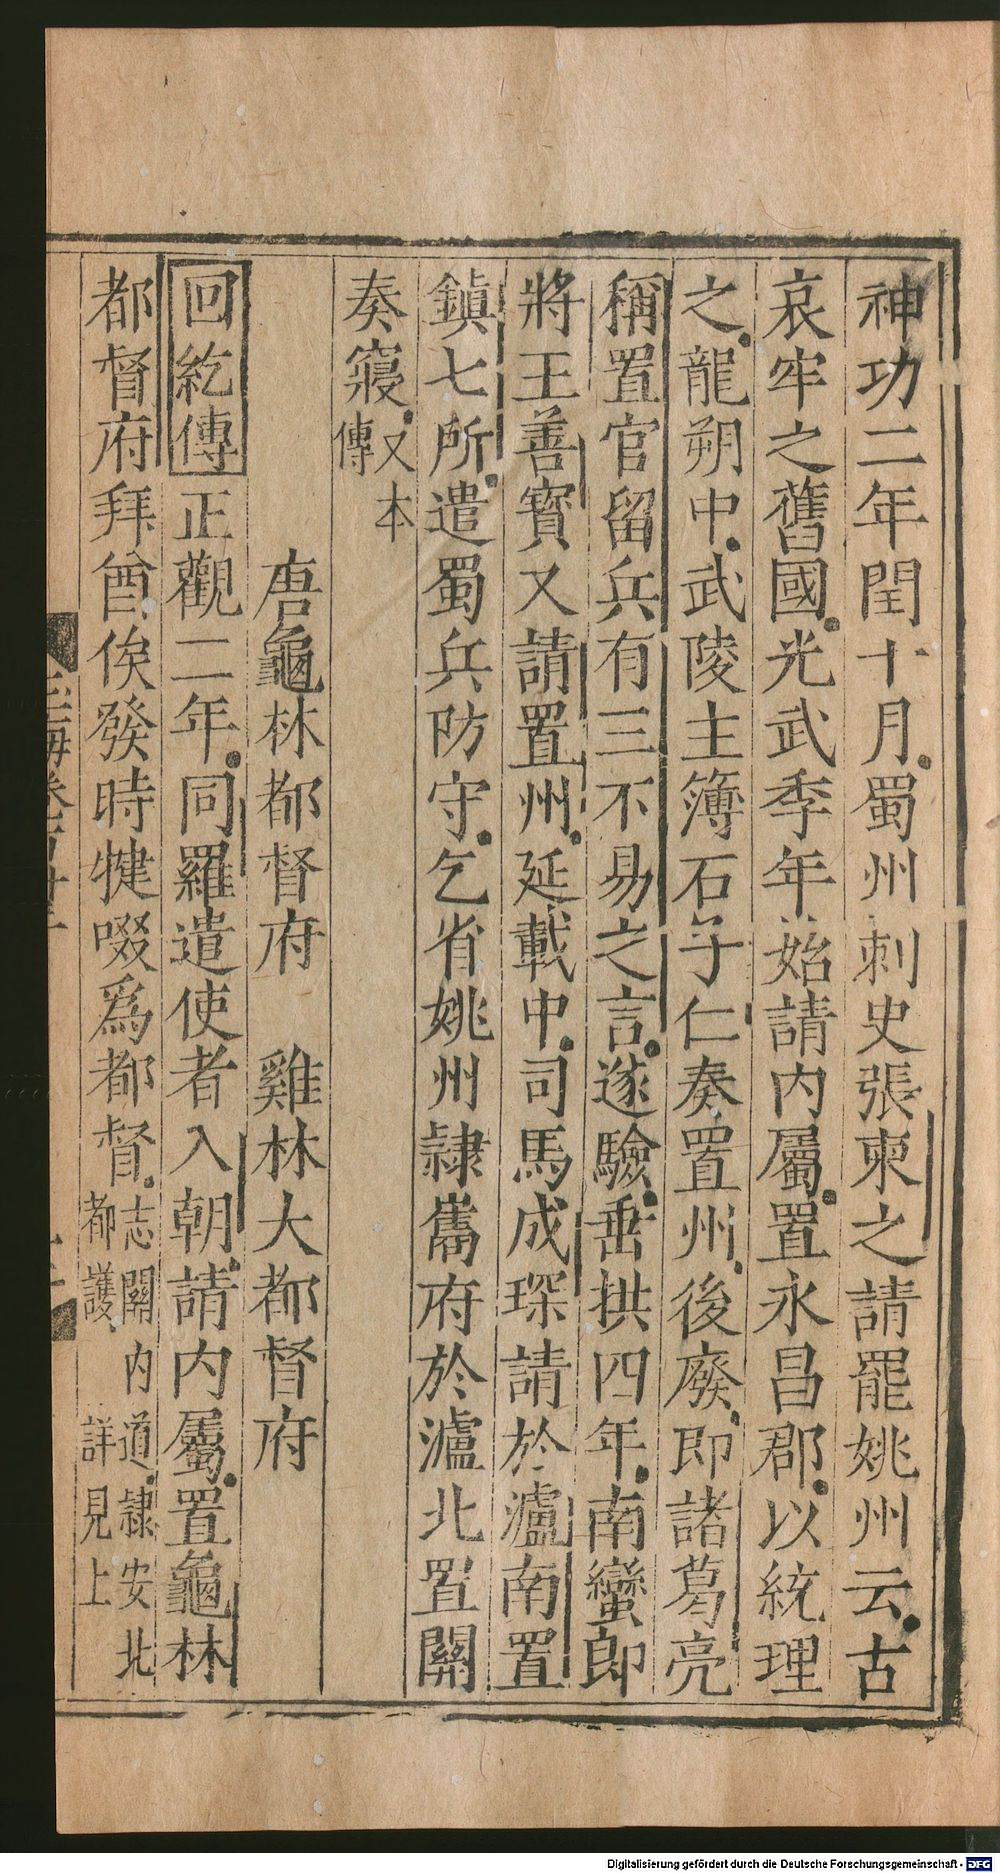 神功二年閏十月蜀州刺史張柬之請罷姚州云古
哀牢之舊國光武季年始請內屬置永昌郡以統理
之龍朔中武陵主簿石子仁奏置州後廢即諸葛亮
稱置官留兵有三不易之言遂驗垂拱四年南蠻郎
將王善寶又請置州延載中司馬成琛請於瀘南置
鎮七所遣蜀兵防守乞省姚州隸雟府於瀘北置關
奏寢又本傳
唐龜林都督府　雞林大都督府
回紇傳正觀二年同羅遣使者入朝請內屬置龜林
都督府拜酋俟發時犍啜爲都督志關內道隸安北都護詳見上
Digitalisierung gefördert durch die Deutsche Forschungsgemeinschaft - DFG